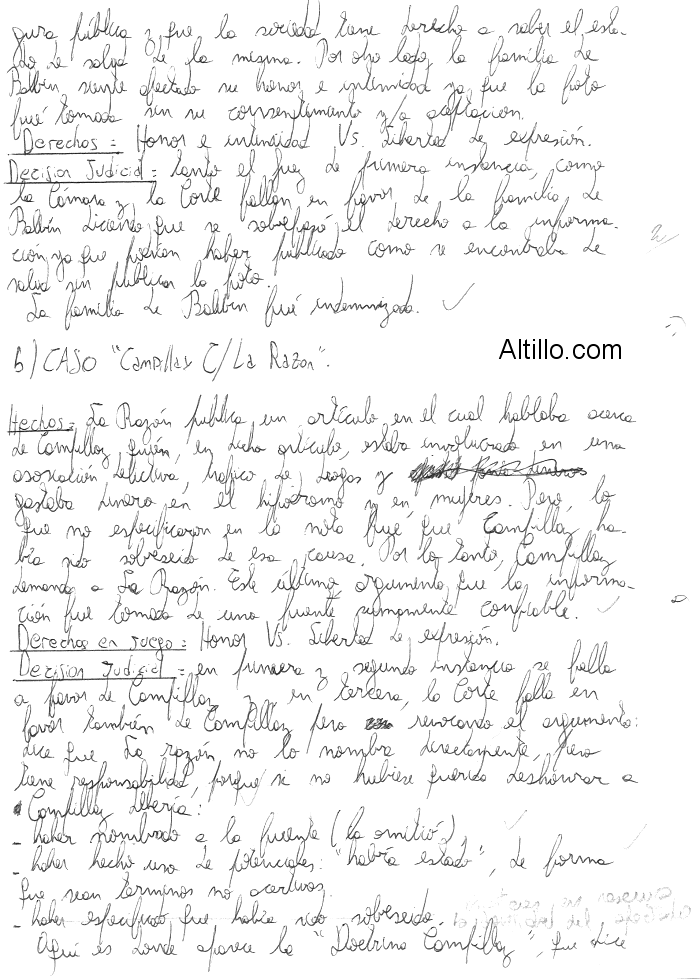 gura pública y que la sociedad tiene derecho a saber el esta-
do de salud de la misma. Por otro lado, la familia de
Balbín siente afectado su honor e intimidad ya que la foto
fué tomada sin su consentimiento y/o aceptación.
Derechos = Honor e intimidad Vs. Libertad de expresión.
Decision Judicial = tanto el juez de primera instancia, como
la Cámara y la Corte fallan en favor de la familia de
Balbín diciendo que se sobrepasó el derecho a la informa-
ción ya que podían haber publicado como se encontraba de
salud sin publicar la foto.
La familia de Balbín fué indemnizada.
b) CASO "Campillay C/La Razon".
Altillo.com
Hechos = La Razón publica un artículo en el cual hablaba acerca
de Campillay quién, en dicho artículo, estaba involucrado en una
asociación delictiva, tráfico de drogas y
gastaba dinero en el hipódromo y en mujeres. Pero, lo
que no especificaron en la nota fué que Campillay ha-
bía sido sobreseido de esa causa. Por lo tanto, Campillay
demanda a La Razón. Este último argumenta que la informa-
ción fue tomada de una fuente sumamente confiable.
Derechos en juego = Honor Vs. Libertad de expresión.
Decision Judicial = en primera y segunda instancia se falla
a favor de Campillay y, en tercera, la Corte falla en
favor también de Campillay pero revocando el argumento:
dice que La razón no lo nombra directamente, pero
tiene responsabilidad, porque si no hubiese querido deshonrar a
Campillay debería:
- haber nombrado a la fuente (la omitió)
- haber hecho uso de potenciales: "habría estado", de forma
que sean términos no asertivos.
- haber especificado que había sido sobreseido.
Aquí es donde aparece la "Doctrina Campillay", que dice